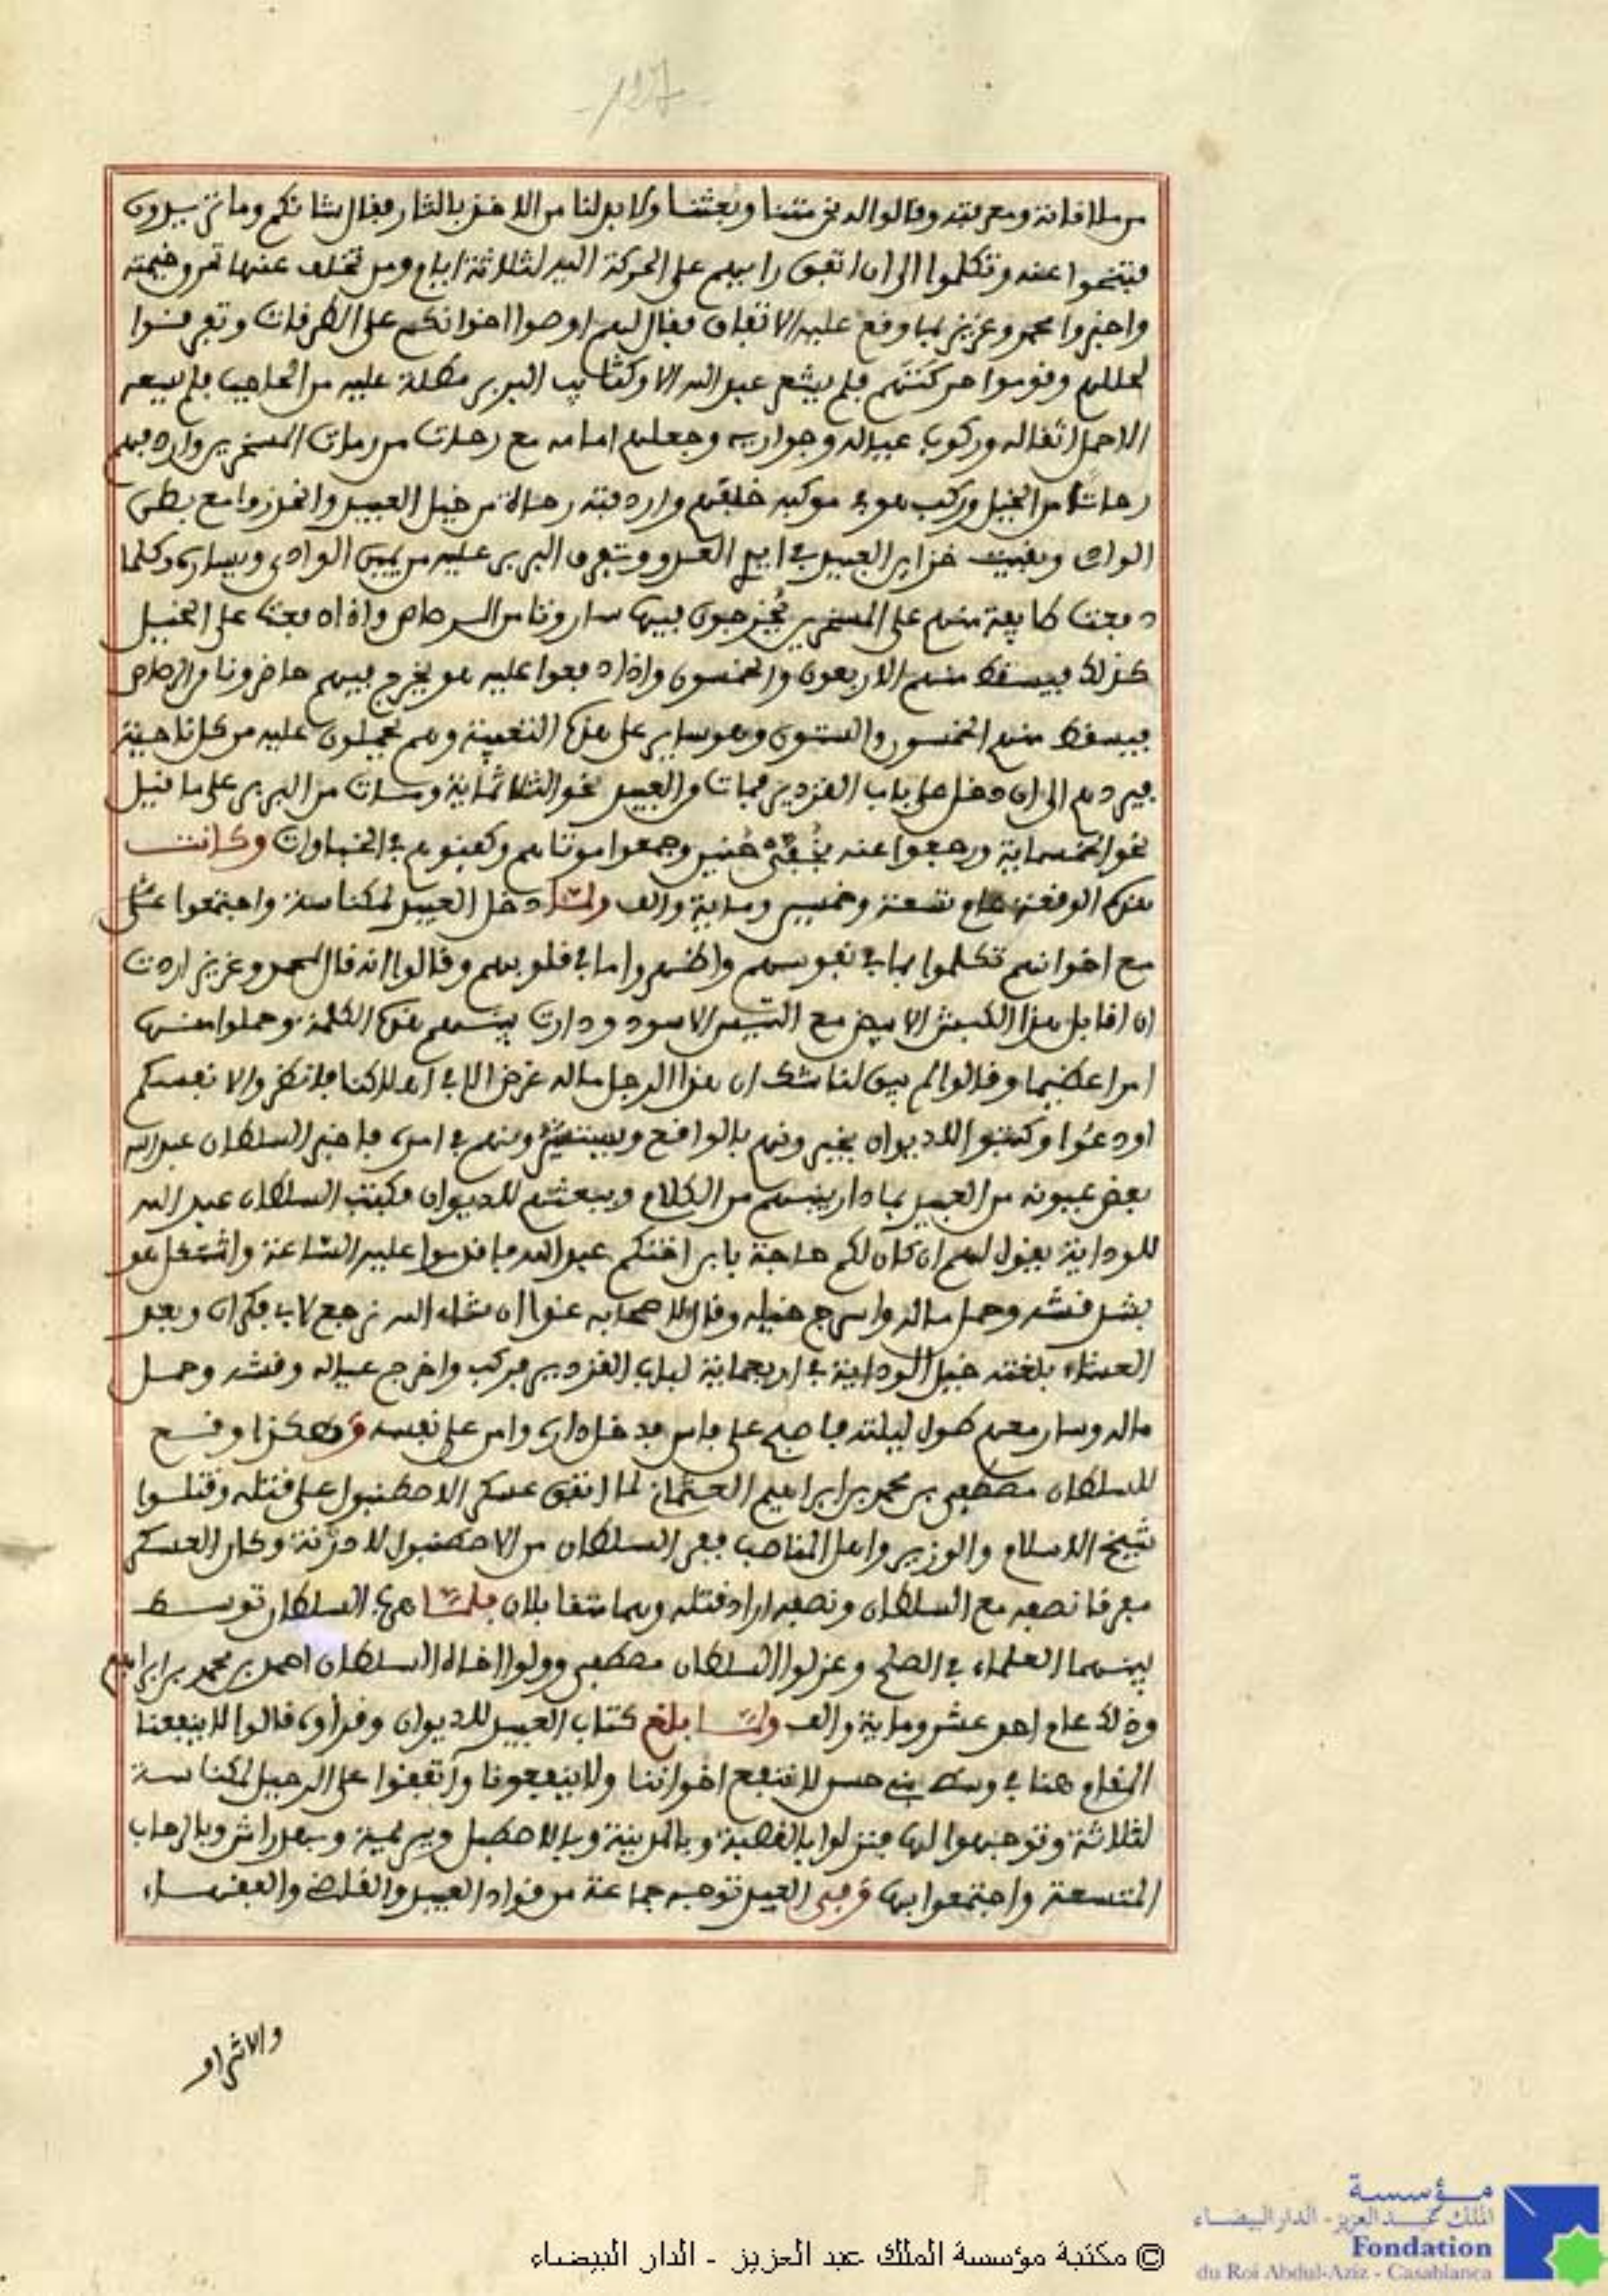 -127-
من ملاقاته ومعرفته وقالوا له نحن متنا وبعثنا ولا بد لنا من الاخذ بالثار فقال شانكم وما تريدون
فتنحوا عنه وتكلموا الى ان اتفق رايهم على الحركة اليه لثلاثة ايام ومن تخلف عنها تحرق خيمته
واخبروا محمد وعزيز بما وقع عليه الاتفاق فقال لهم اوصوا اخوانكم على الطرقات وتفرقوا
لحللهم وقوموا حركتكم فلم يشعر عبد الله الا وكتايب البربر مطلة عليه من الحاجب فلم يسعه
الا حمل اثقاله وركوب عياله وجواريه وجعلهم امامه مع رحات من رمات المسخرين واردفهم
رحاتا من الخيل وركب هو في موكبه خلفهم واردفته رحاة من خيل العبيد وانحدروا مع بطن
الواد وبقيت خزاين العبيد في ايدي العدو وتفرق البربر عليه من يمين الوادي ويساره وكلما
دفعت طايفة منهم على المسخرين يخرجون فيها بارونا من الرصاص واذا دفعت على الخيل
كذلك فيسقط منهم الاربعون والخمسون واذا دفعوا عليه هو يخرج فيهم حاضرونا من الرصاص
فيسقط منهم الخمسون والستون وهو ساير على هذه التعبية وهم يحملون عليه من كل ناحية
فيردهم الى ان دخل على باب القزدير فمات من العبيد نحو الثلاثماية ومات من البربر على ما قيل
نحو الخمسماية ورجعوا عنه بخفي حنين وجمعوا موتاهم وكفنوهم في الخباوات وكانت
هذه الوقعة عام تسعة وخمسين وماية والف ولما دخل العبيد لمكناسة واجتمعوا
مع اخوانهم تكلموا بما في نفوسهم واظهروا ما في قلوبهم وقالوا انه قال لمحمد وعزيز اردت
ان اقابل هذا الكبش الابيض مع التيس الاسود ودارت بينهم هذه الكلمة وحملوا منها
امرا عظيما وقالوا لم يبق لنا شك ان هذا الرجل ماله غرض الا في اهلاكنا فانظروا لانفسكم
اودعوا وكتبوا للديوان يخبرونهم بالواقع ويستشيرونهم في امره فاخبر السلطان عبد الله
بعض عيونه من العبيد بما دار بينهم من الكلام وبعثهم للديوان فكتب السلطان عبد الله
للوداية يقول لهم ان كان لكم حاجة بابن اختكم عبد الله فاقدموا عليه الساعة واشتغل هو
بشد قشه وحمل ماله واسرج خيله وقال لاصحابه غدا ان شاء الله نرجع لاب فكران وبعد
العشاء بلغته خيل الوداية في اربعماية لباب القزدير فركب واخرج عياله وقشه وحمل
ماله وسار معهم طول ليلته فاصبح على فاس فدخل داره وامن على نفسه وهكذا وقع
للسلطان مصطفى بن محمد بن ابراهيم العثماني لما اتفق عسكر الاصطنبول على قتله وقتلوا
شيخ الاسلام والوزير واهل المناصب ففر السلطان من الاصطنبول لادرنة وكان العسكر
مفرقا نصفه مع السلطان ونصفه اراد قتله وهما متقابلان فلما هرب السلطان توسط
بينهما العلماء في الصلح وعزلوا السلطان مصطفى وولوا اخاه السلطان احمد بن محمد بن ابراهيم
وذلك عام احد عشر وماية والف ولما بلغ كتاب العبيد للديوان وقراوه قالوا لا ينفعنا
المقام هنا في وسط بني حسن لا ننفع اخواننا ولا ينفعونا واتفقوا على الرحيل لمكناسة
لثلاثة وتوجهوا لها فنزلوا بالقصبة وبالمدينة وبالاصطبل وبريمية وبهدراش وبالرحاب
المتسعة واجتمعوا بها وفي العيد توجه جماعة من قواد العبيد والقاضي والفقهاء
والاشراف
© مكتبة مؤسسة الملك عبد العزيز - الدار البيضاء
مؤسسة
الملك عبد العزيز - الدار البيضاء
Fondation
du Roi Abdul-Aziz - Casablanca